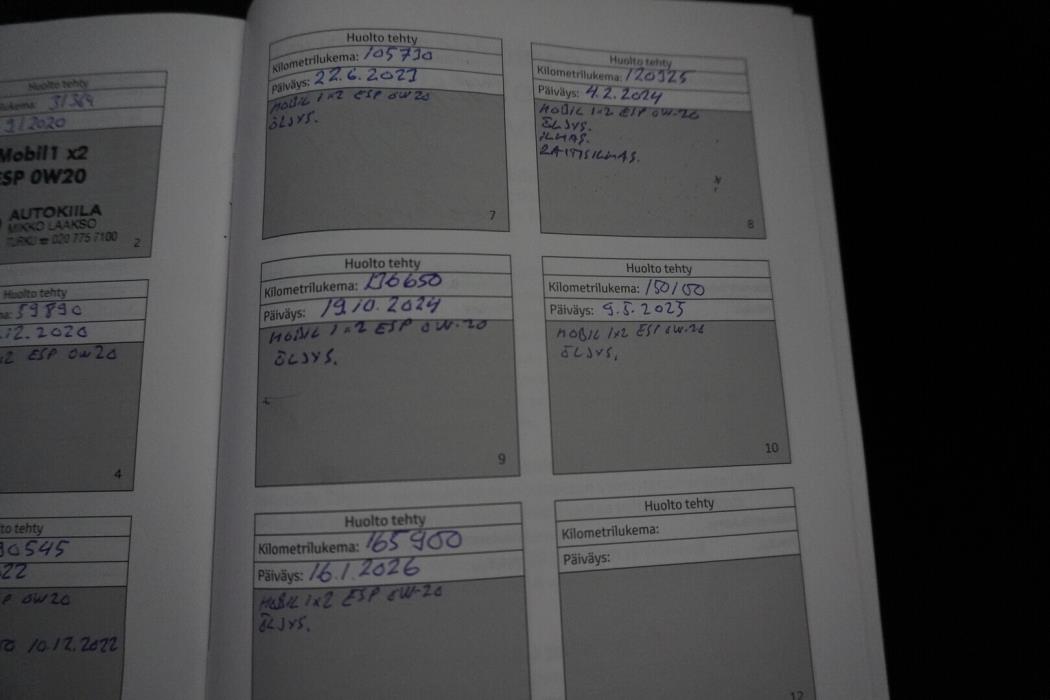 Huolto tehty
lukema: 31364
9/2020
Mobil1 x2
ESP 0W20
AUTOKIILA
MIKKO LAAKSO
TURKU ☎ 020 775 7100
2
Huolto tehty
59890
.12.2020
x2 ESP 0W20
4
to tehty
90545
22
P 0W20
TO 10.12.2022
Huolto tehty
Kilometrilukema: 105730
Päiväys: 22.6.2023
MOBIL 1x2 ESP 0W20
ÖLJYS.
7
Huolto tehty
Kilometrilukema: 120325
Päiväys: 4.2.2024
MOBIL 1x2 ESP 0W-20
ÖLJYS.
ILMAS.
RAITISILMAS.
8
Huolto tehty
Kilometrilukema: 136650
Päiväys: 19.10.2024
MOBIL 1x2 ESP 0W-20
ÖLJYS.
9
Huolto tehty
Kilometrilukema: 150100
Päiväys: 9.5.2025
MOBIL 1x2 ESP 0W-20
ÖLJYS.
10
Huolto tehty
Kilometrilukema: 165900
Päiväys: 16.1.2026
MOBIL 1x2 ESP 0W-20
ÖLJYS.
Huolto tehty
Kilometrilukema:
Päiväys:
12